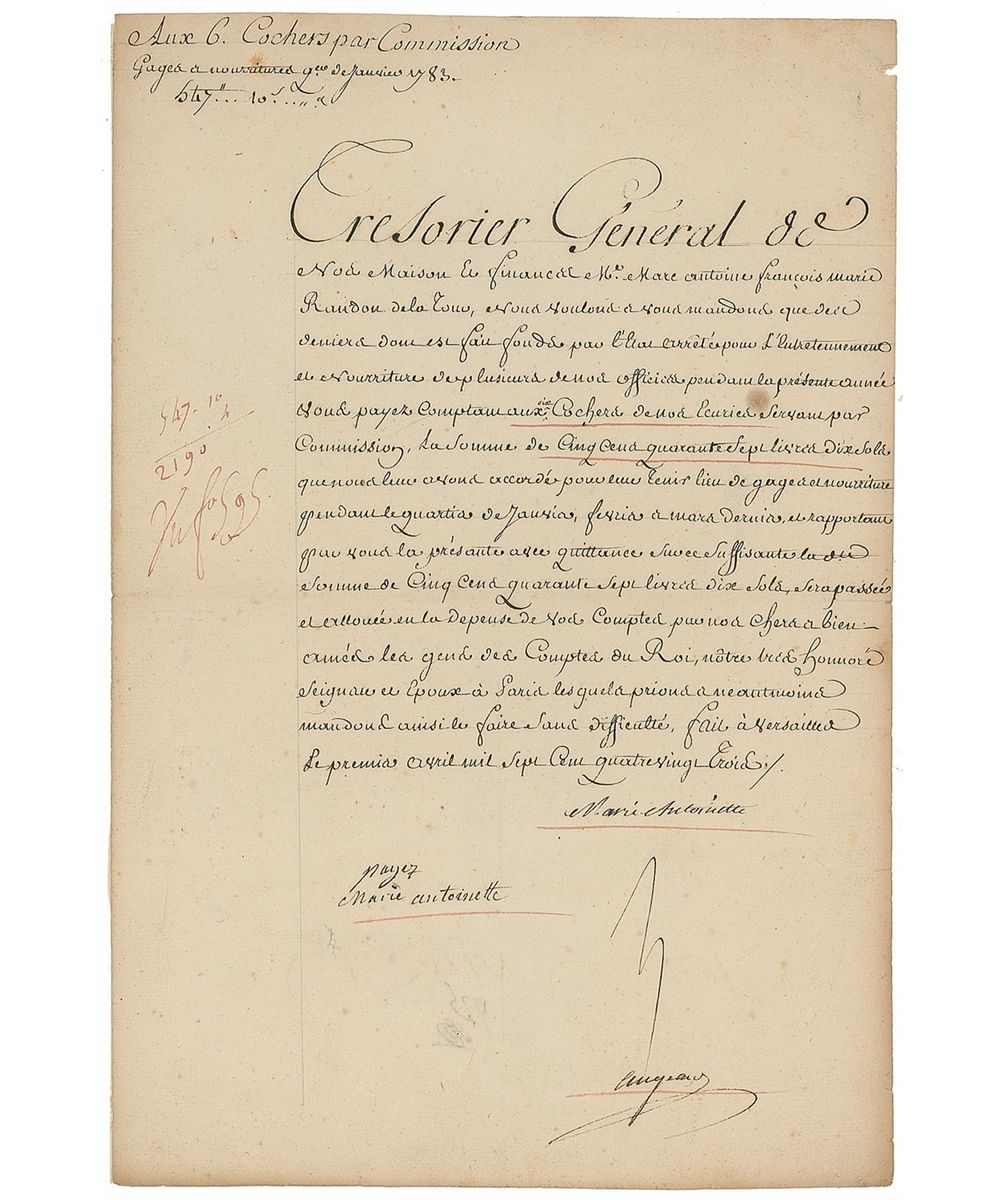 Aux 6. Cochers par Commission
Gages & nourritures qer de Janvier 1783.
547ⁿ... 10ˢ... „ ᵈ
Tresorier Général de
Nos Maison et finances Mr. Marc antoine françois marie
Randon de la Tour, Nous voulons & vous mandons que des
deniers dont est fait fonds par l'Etat arrêté pour L'Entretennement
et Nourriture de plusieurs de nos officiers pendant la présente année
vous payez Comptant aux six Cochers de nos Ecuries Servant par
Commission, La Somme de Cinq Cens quarante Sept livres dix Sols
que nous leur avons accordé pour leur tenir lieu de gages et nourriture
pendant le quartier de Janvier, fevrier & mars dernier, et rapportant
par vous la présante avec quittance sur ce Suffisante la de
Somme de Cinq Cens quarante Sept livres dix Sols, Sera passée
et allouée en la depense de vos Comptes par nos Chers & bien-
amés les gens des Comptes du Roi, nôtre très honnoré
Seigneur et Epoux à Paris lesquels prions & néantmoins
mandons ainsi le faire Sans difficulté, fait à Versailles
Le premier avril mil Sept Cent quatre vingt Trois ./.
Marie Antoinette
payez
Marie antoinette
augeard
547- 10
4
2190